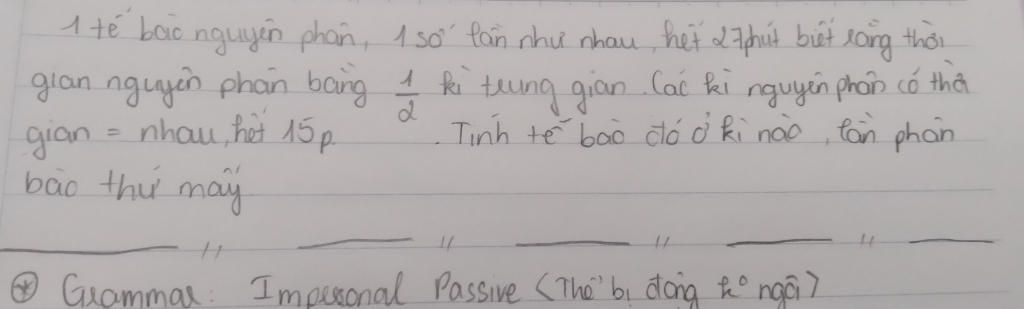 1 tế bào nguyên phân, 1 số lần như nhau, hết 27phút biết rằng thời
gian nguyên phân bằng 1/2 kì trung gian. Các kì nguyên phân có thời
gian = nhau, hết 15p. Tính tế bào đó ở kì nào, lần phân
bào thứ mấy
Grammar: Impersonal Passive (Thể bị động ko ngôi)